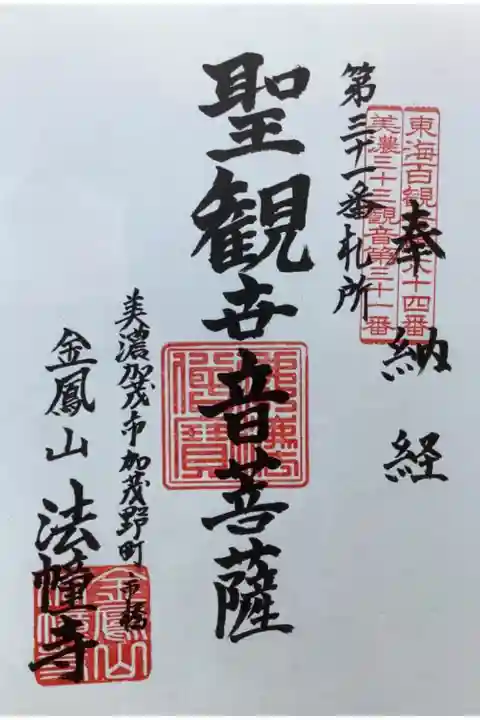 奉納経
東海百観
十四番
美濃三十三観音第三十一番
第三十一番札所
聖観世音菩薩
美濃加茂市加茂野町市橋
金鳳山 法幢寺
佛法僧寶
金鳳山